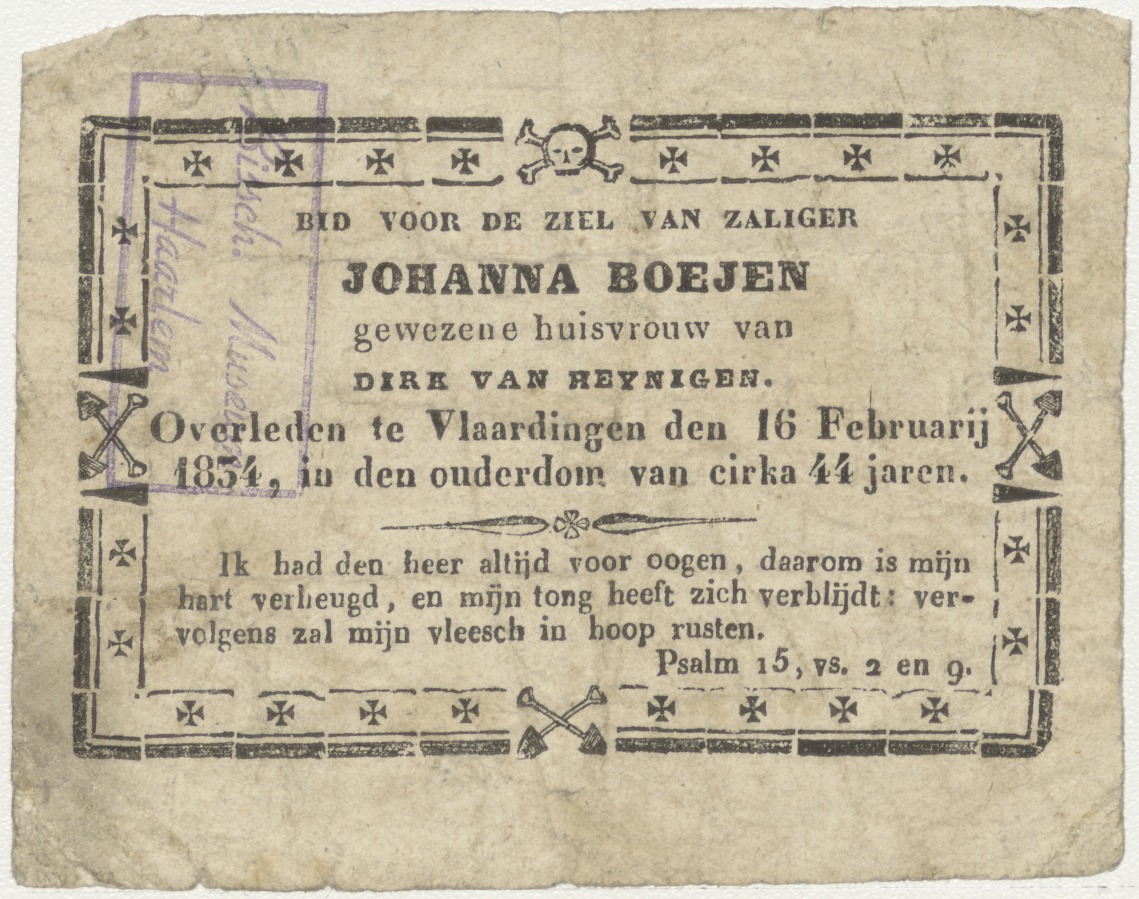 BID VOOR DE ZIEL VAN ZALIGER
JOHANNA BOEJEN
gewezene huisvrouw van
DIRK VAN HEYNIGEN.
Overleden te Vlaardingen den 16 Februarij
1834, in den ouderdom van cirka 44 jaren.
Ik had den heer altijd voor oogen, daarom is mijn
hart verheugd, en mijn tong heeft zich verblijdt: ver-
volgens zal mijn vleesch in hoop rusten.
Psalm 15, vs. 2 en 9.
Bissch. Museum
Haarlem